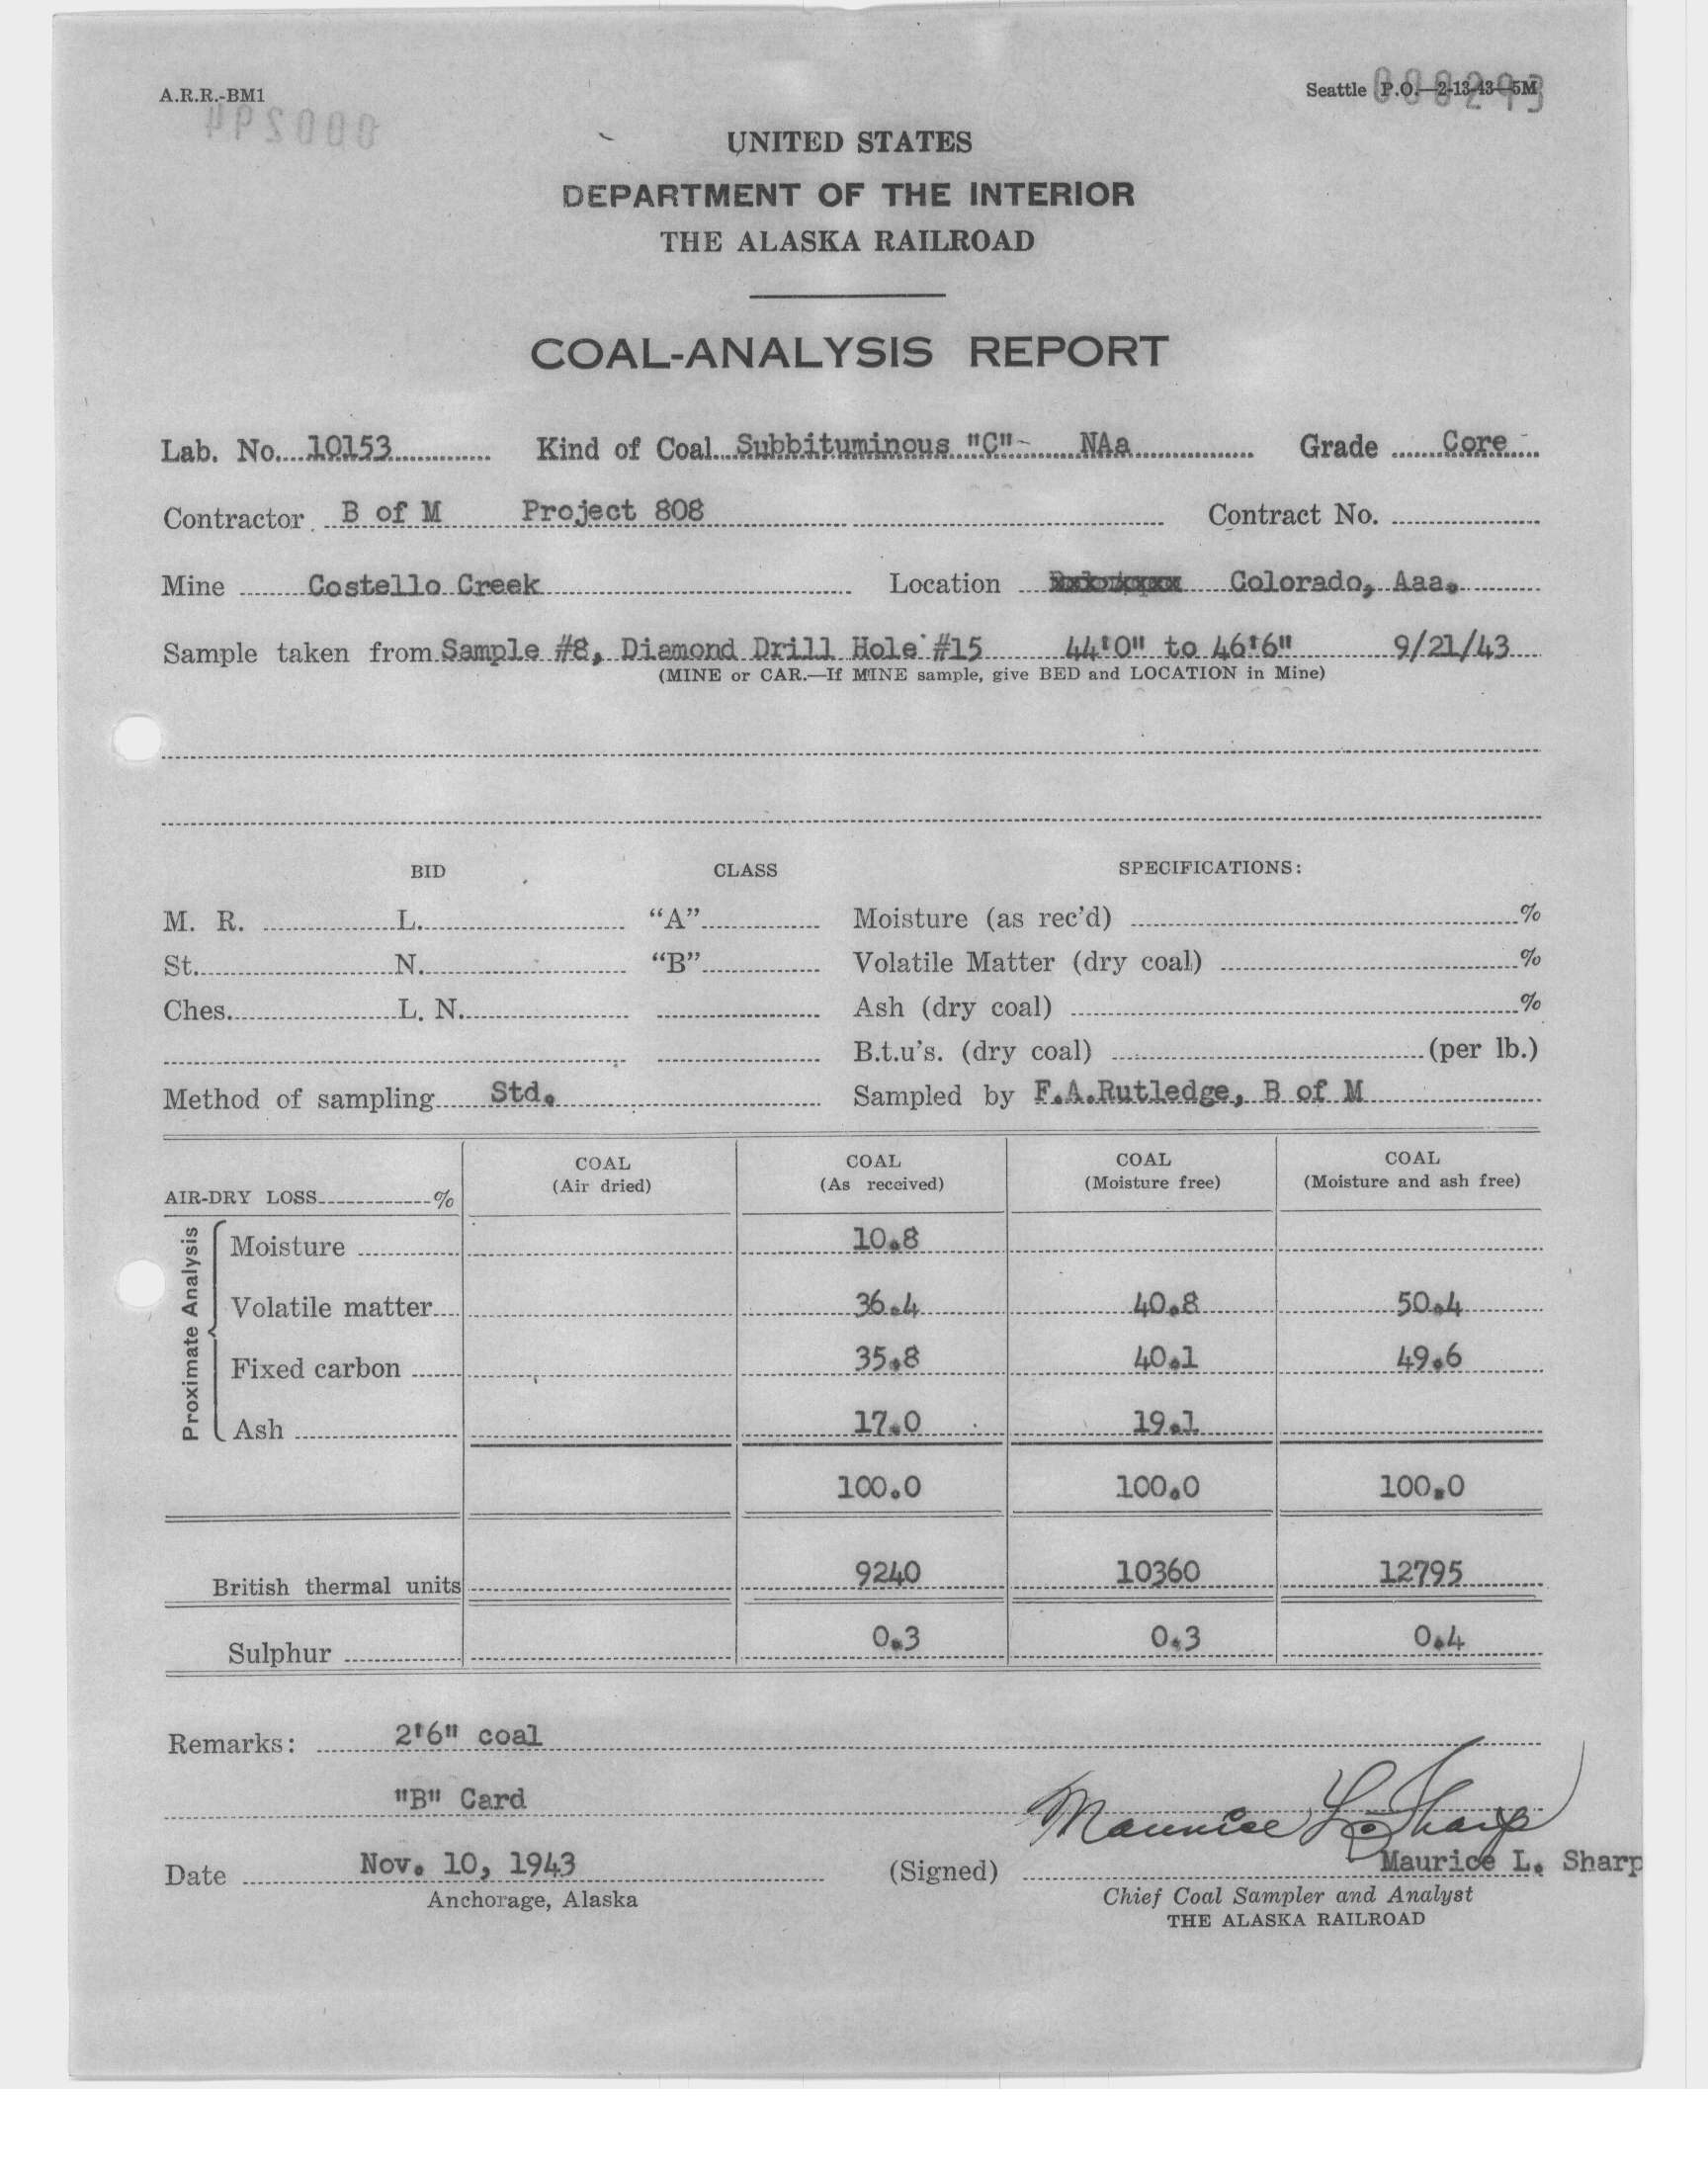 A.R.R.-BM1
Seattle P.O.—2-13-43—5M
000293
000294
UNITED STATES
DEPARTMENT OF THE INTERIOR
THE ALASKA RAILROAD
COAL-ANALYSIS REPORT
Lab. No. 10153 Kind of Coal Subbituminous "C"- NAa Grade Core
Contractor B of M Project 808 Contract No.
Mine Costello Creek Location Colorado, Aaa.
Sample taken from Sample #8, Diamond Drill Hole #15 44'0" to 46'6" 9/21/43
(MINE or CAR.—If MINE sample, give BED and LOCATION in Mine)
BID CLASS SPECIFICATIONS:
M. R. L. "A" Moisture (as rec'd) %
St. N. "B" Volatile Matter (dry coal) %
Ches. L. N. Ash (dry coal) %
B.t.u's. (dry coal) (per lb.)
Method of sampling Std. Sampled by F.A.Rutledge, B of M
AIR-DRY LOSS % COAL (Air dried) COAL (As received) COAL (Moisture free) COAL (Moisture and ash free)
Proximate Analysis
Moisture 10.8
Volatile matter 36.4 40.8 50.4
Fixed carbon 35.8 40.1 49.6
Ash 17.0 19.1
100.0 100.0 100.0
British thermal units 9240 10360 12795
Sulphur 0.3 0.3 0.4
Remarks: 2'6" coal
"B" Card
Maurice L. Sharp
Date Nov. 10, 1943 (Signed) Maurice L. Sharp
Anchorage, Alaska Chief Coal Sampler and Analyst
THE ALASKA RAILROAD